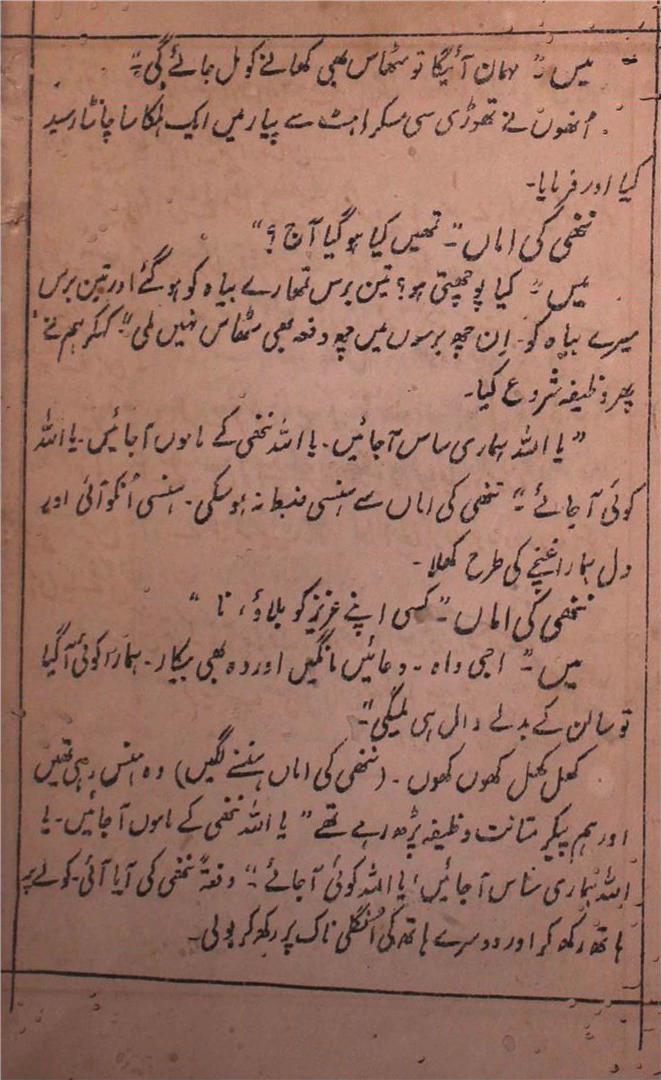 میں ـ" مہمان آئیگا تو مٹھاس بھی کھانے کو مل جائے گی"۔
اُنھوں نے تھوڑی سی مسکراہٹ سے پیار میں ایک ہلکا سا چانٹا رسید
کیا اور فرمایا۔
ننھی کی اماں ـ" تمھیں کیا ہو گیا آج ؟"
میں ـ" کیا پوچھتی ہو؟ تین برس تمھارے بیاہ کو ہو گئے اور تین برس
میرے بیاہ کو۔ اِن چھ برسوں میں چھ دفعہ بھی مٹھاس نہیں ملی"۔ کہکر ہم نے
پھر وظیفہ شروع کیا۔
"یا اللہ ہماری ساس آجائیں۔ یا اللہ ننھی کے ماموں آجائیں۔ یا اللہ
کوئی آجائے"۔ ننھی کی اماں سے ہنسی ضبط نہ ہو سکی۔ ہنسی اُنکو آئی اور
دل ہمارا غنچے کی طرح کھلا۔
ننھی کی اماں ـ" کسی اپنے عزیز کو بلاؤ، نا "
میں ـ" اجی واہ ۔ دعائیں مانگیں اور وہ بھی بیکار۔ ہمارا کوئی آگیا
تو سالن کے بدلے دال ہی ملیگی"۔
کھل کھل کھوں کھوں ۔ (ننھی کی اماں ہنسنے لگیں) وہ ہنس رہی تھیں
اور ہم پیکرِ متانت وظیفہ پڑھ رہے تھے " یا اللہ ننھی کے ماموں آجائیں۔ یا
اللہ ہماری ساس آجائیں، یا اللہ کوئی آجائے"۔ دفعۃً ننھی کی آیا آئی۔ کولے پر
ہاتھ رکھ کر اور دوسرے ہاتھ کی اُنگلی ناک پر رکھ کر بولی۔